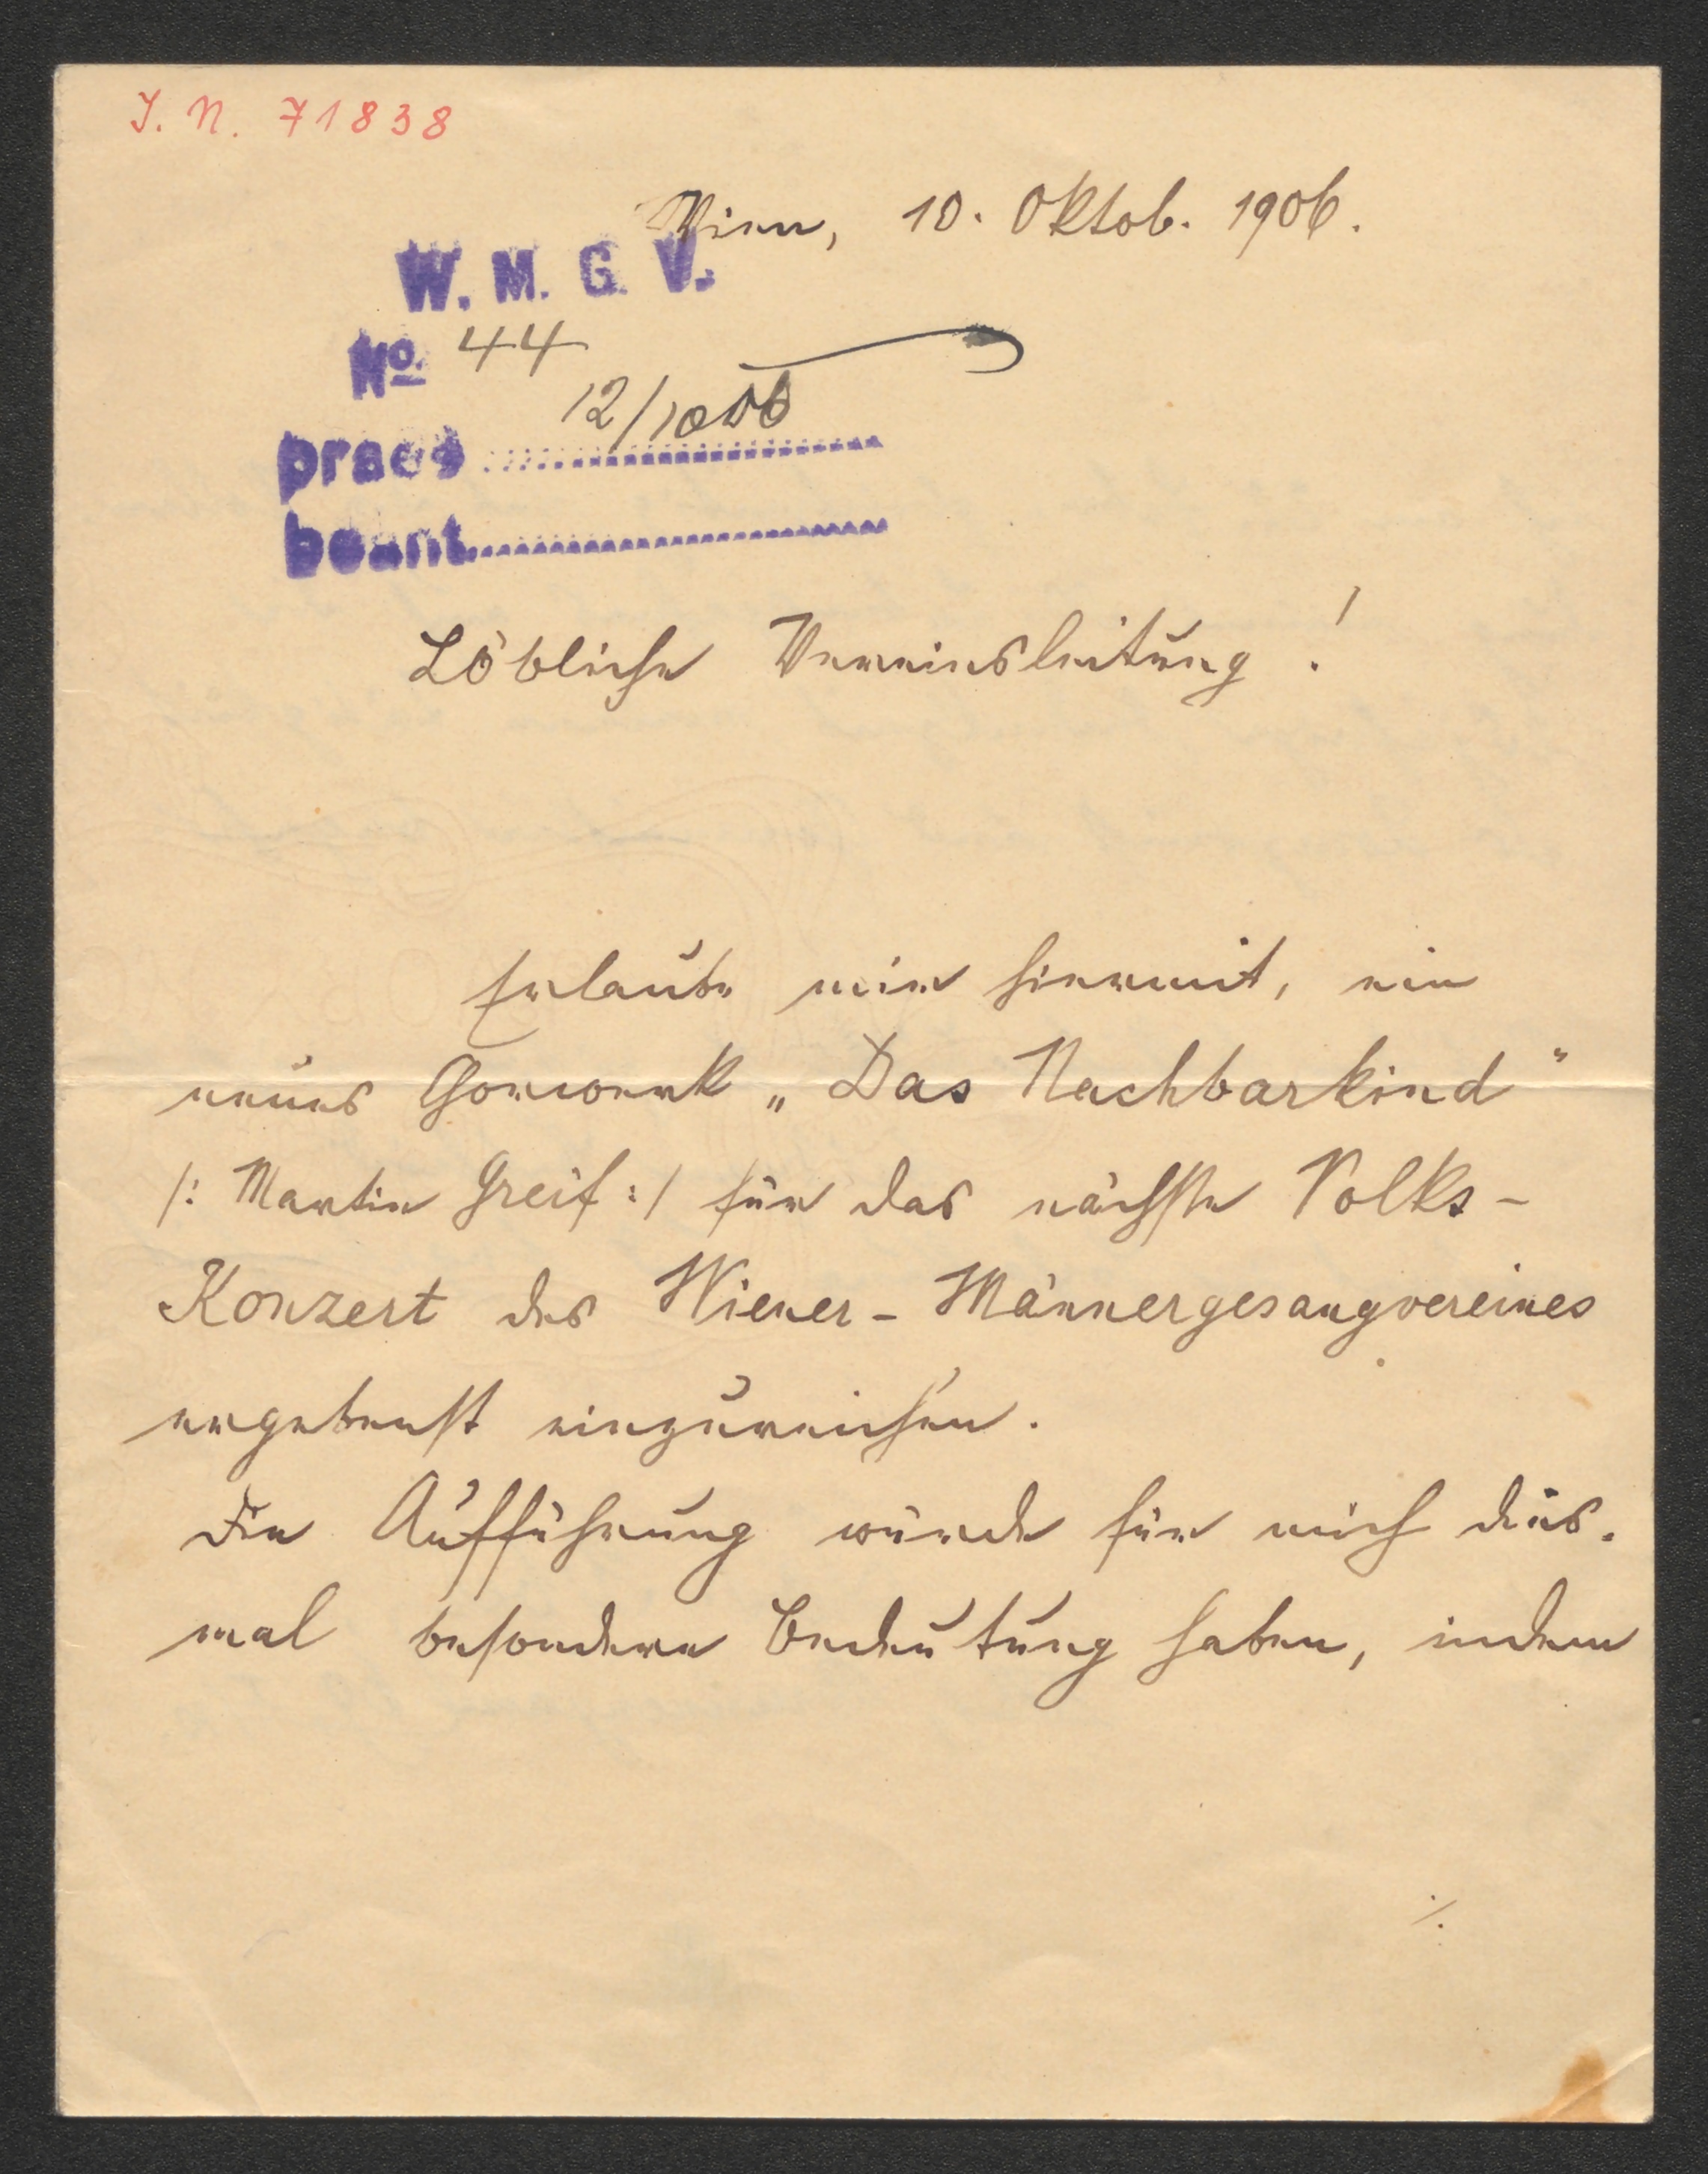 J. N. 71838
Wien, 10. Oktob. 1906.
W. M. G. V.
No. 44
praes 12/10 06
beant.
Löbliche Vereinsleitung!
Erlaube mir hiermit, ein
neues Chorwerk „Das Nachbarkind"
/: Martin Greif :/ für das nächste Volks-
Konzert des Wiener-Männergesangvereines
ergebenst einzureichen.
Die Aufführung würde für mich dies-
mal besondere Bedeutung haben, indem
./.